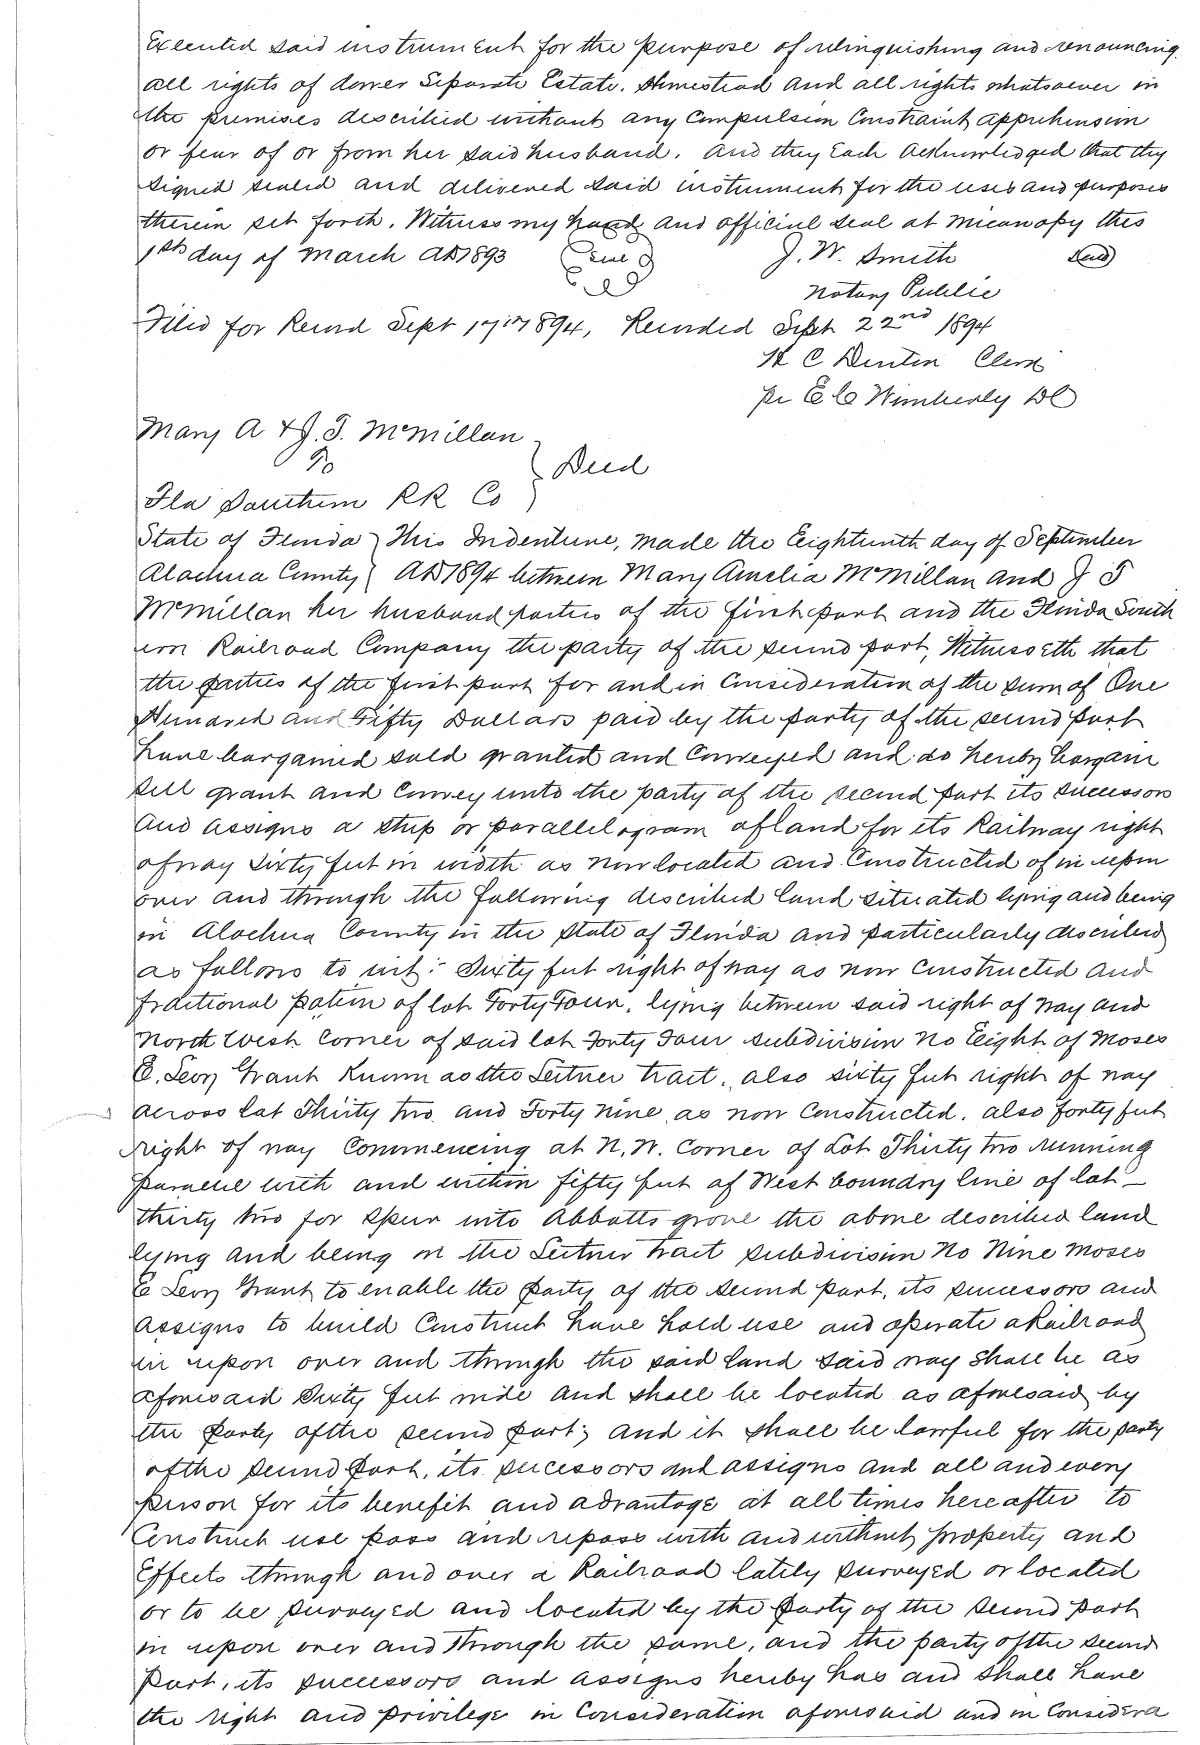 Executed said instrument for the purpose of relinquishing and renouncing
all rights of dower Separate Estate. Homestead and all rights whatsoever in
the premises described without any Compulsion Constraint apprehension
or fear of or from her said husband. And they Each Acknowledged that they
signed sealed and delivered said instrument for the uses and purposes
therein set forth. Witness my hand and official seal at Micanopy this
1st day of March AD 1893 Seal J. W. Smith Seal
Notary Public
Filed for Record Sept 17th 1894, Recorded Sept 22nd 1894
H C Denton Clerk
pr E C Wimberly DC
Mary A & J. T. McMillan
To } Deed
Fla Southern RR Co
State of Florida } This Indenture, made the Eighteenth day of September
Alachua County } AD 1894 between Mary Amelia McMillan and J T
McMillan her husband parties of the first part and the Florida South
ern Railroad Company the party of the second part, Witnesseth that
the parties of the first part for and in Consideration of the sum of One
Hundred and Fifty Dollars paid by the party of the second part
have bargained sold granted and Conveyed and do hereby bargain
sell grant and Convey unto the party of the second part its successors
and assigns a strip or parallelogram of land for its Railway right
of way sixty feet in width as now located and Constructed of in upon
over and through the following described land situated lying and being
in Alachua County in the State of Florida and particularly described
as follows to wit: Sixty feet right of way as now Constructed and
fractional potion of lot Forty Four, lying between said right of way and
North West Corner of said lot Forty Four subdivision No Eight of Moses
E. Levy Grant Known as the Leitner tract. also sixty feet right of way
across lot Thirty two and Forty Nine as now Constructed. also forty feet
right of way Commencing at N.W. Corner of Lot Thirty two running
paralell with and within fifty feet of West boundry line of lot
thirty two for Spur into Abbotts grove the above described land
lying and being in the Leitner tract subdivision No Nine Moses
E Levy Grant to enable the party of the second part, its successors and
assigns to build Construct have hold use and operate a Railroad
in upon over and through the said land said way shall be as
aforesaid Sixty feet wide and shall be located as aforesaid by
the party of the second part; and it shall be lawful for the party
of the second part, its sucessors and assigns and all and every
person for its benefit and advantage at all times hereafter to
Construct use pass and repass with and without property and
Effects through and over a Railroad lately surveyed or located
or to be surveyed and located by the party of the second part
in upon over and through the same, and the party of the second
part, its successors and assigns hereby has and shall have
the right and privilege in Consideration aforesaid and in Considera